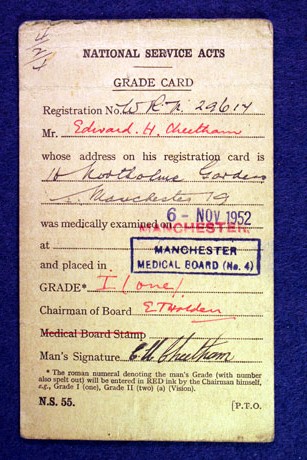 NATIONAL SERVICE ACTS
GRADE CARD
Registration No. W R P. 29614
Mr. Edward. H. Cheetham
whose address on his registration card is
Gardens
Manchester 19
was medically examined on 6 - NOV 1952
MANCHESTER
at MANCHESTER
MEDICAL BOARD (No. 4)
and placed in
GRADE* I (one)
Chairman of Board E T Holden
Medical Board Stamp
Man's Signature E H Cheetham
* The roman numeral denoting the man's Grade (with number
also spelt out) will be entered in RED ink by the Chairman himself,
e.g., Grade I (one), Grade II (two) (a) (Vision).
N.S. 55. [P.T.O.